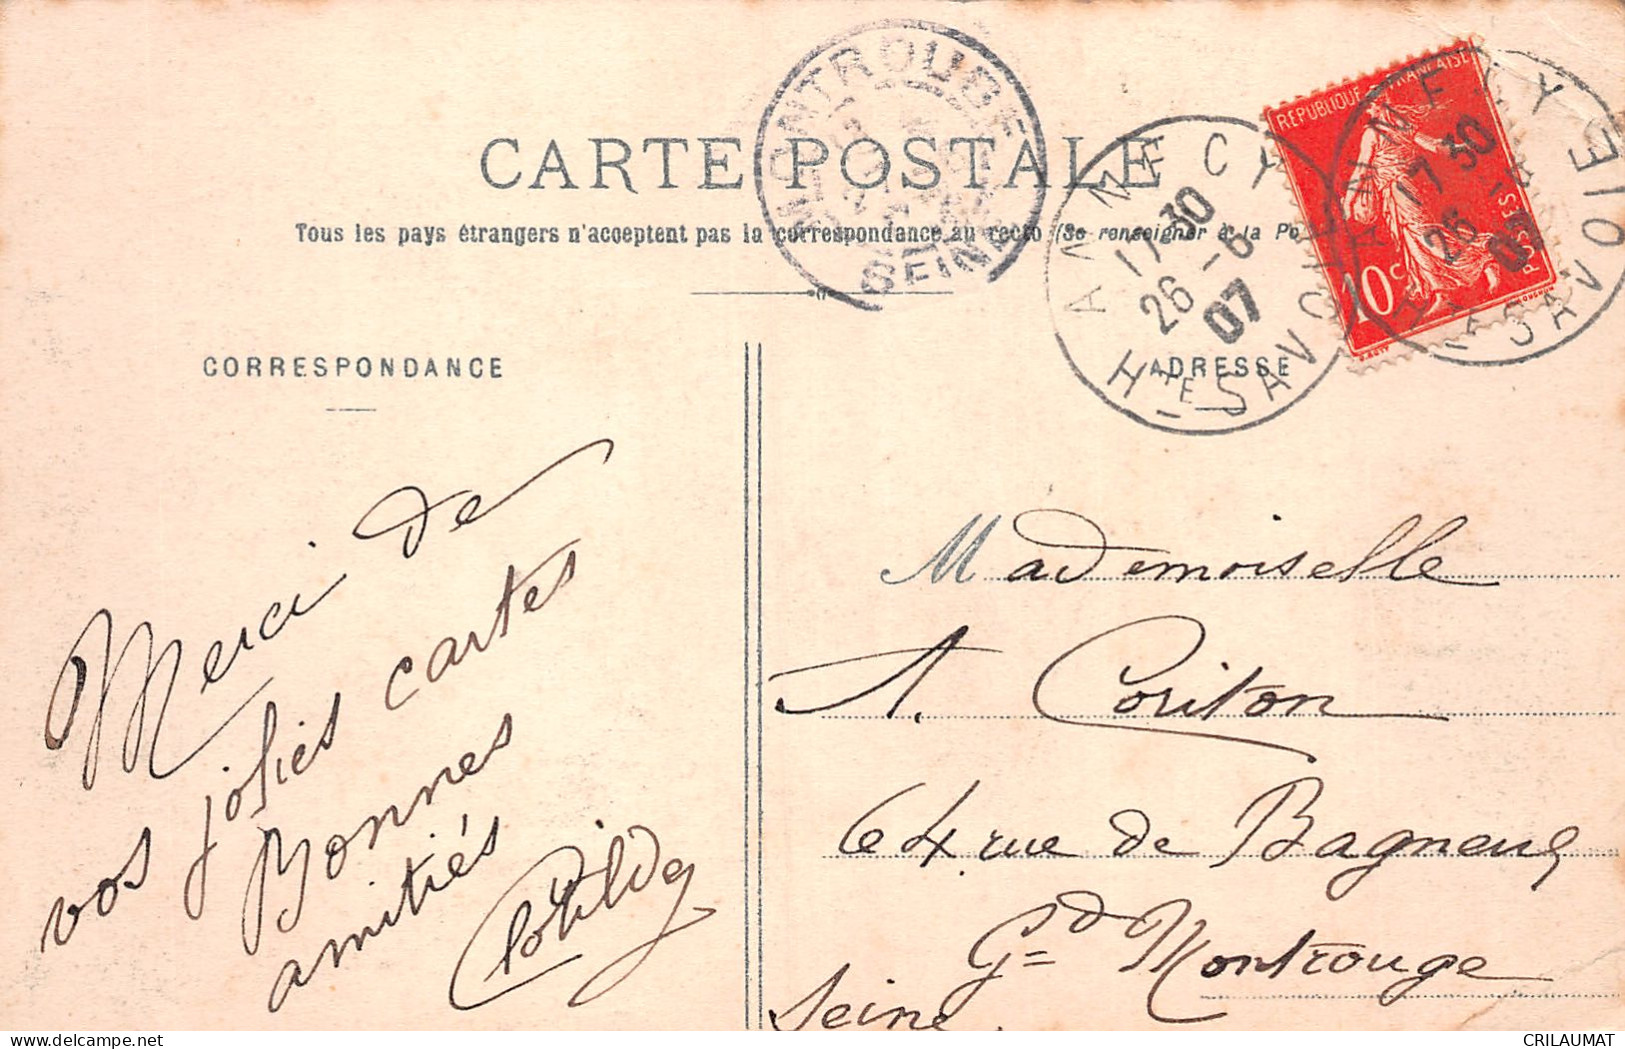 CARTE POSTALE
Tous les pays étrangers n'acceptent pas la correspondance au recto (Se renseigner à la Po
MONTROUGE
SEINE
ANNECY
17 30
26 - 6
07
HTE SAVOIE
ANNECY
17 30
26 - 6
07
HTE SAVOIE
REPUBLIQUE FRANÇAISE
10c
POSTES
CORRESPONDANCE
ADRESSE
Merci de
vos jolies cartes
Bonnes
amitiés
Clotilde
Mademoiselle
A. Coriton
64 rue de Bagneux
Gd Montrouge
Seine.
CRILAUMAT